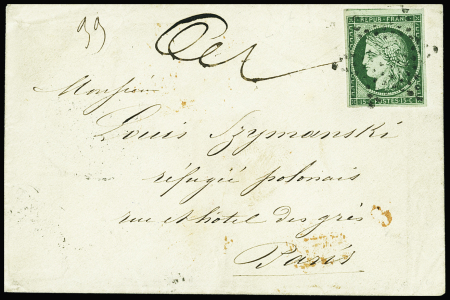 99
REPUB. FRANC.
15 POSTES 15
Monsieur
Louis Szymanski
réfugié polonais
rue et hôtel des grès
Paris